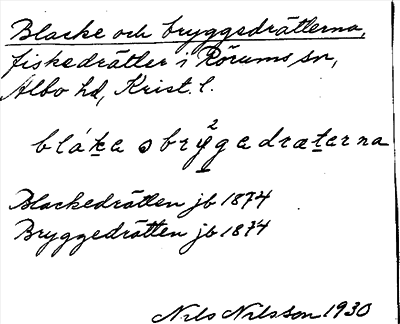 Blacke och bryggedrätterna,
fiskedrätter i Rörums sn,
Albo hd, Krist. l.
blákа ɔ brẏ²gedrætеrna
Blackedrätten jb 1874
Bryggedrätten jb 1874
Nils Nilsson 1930